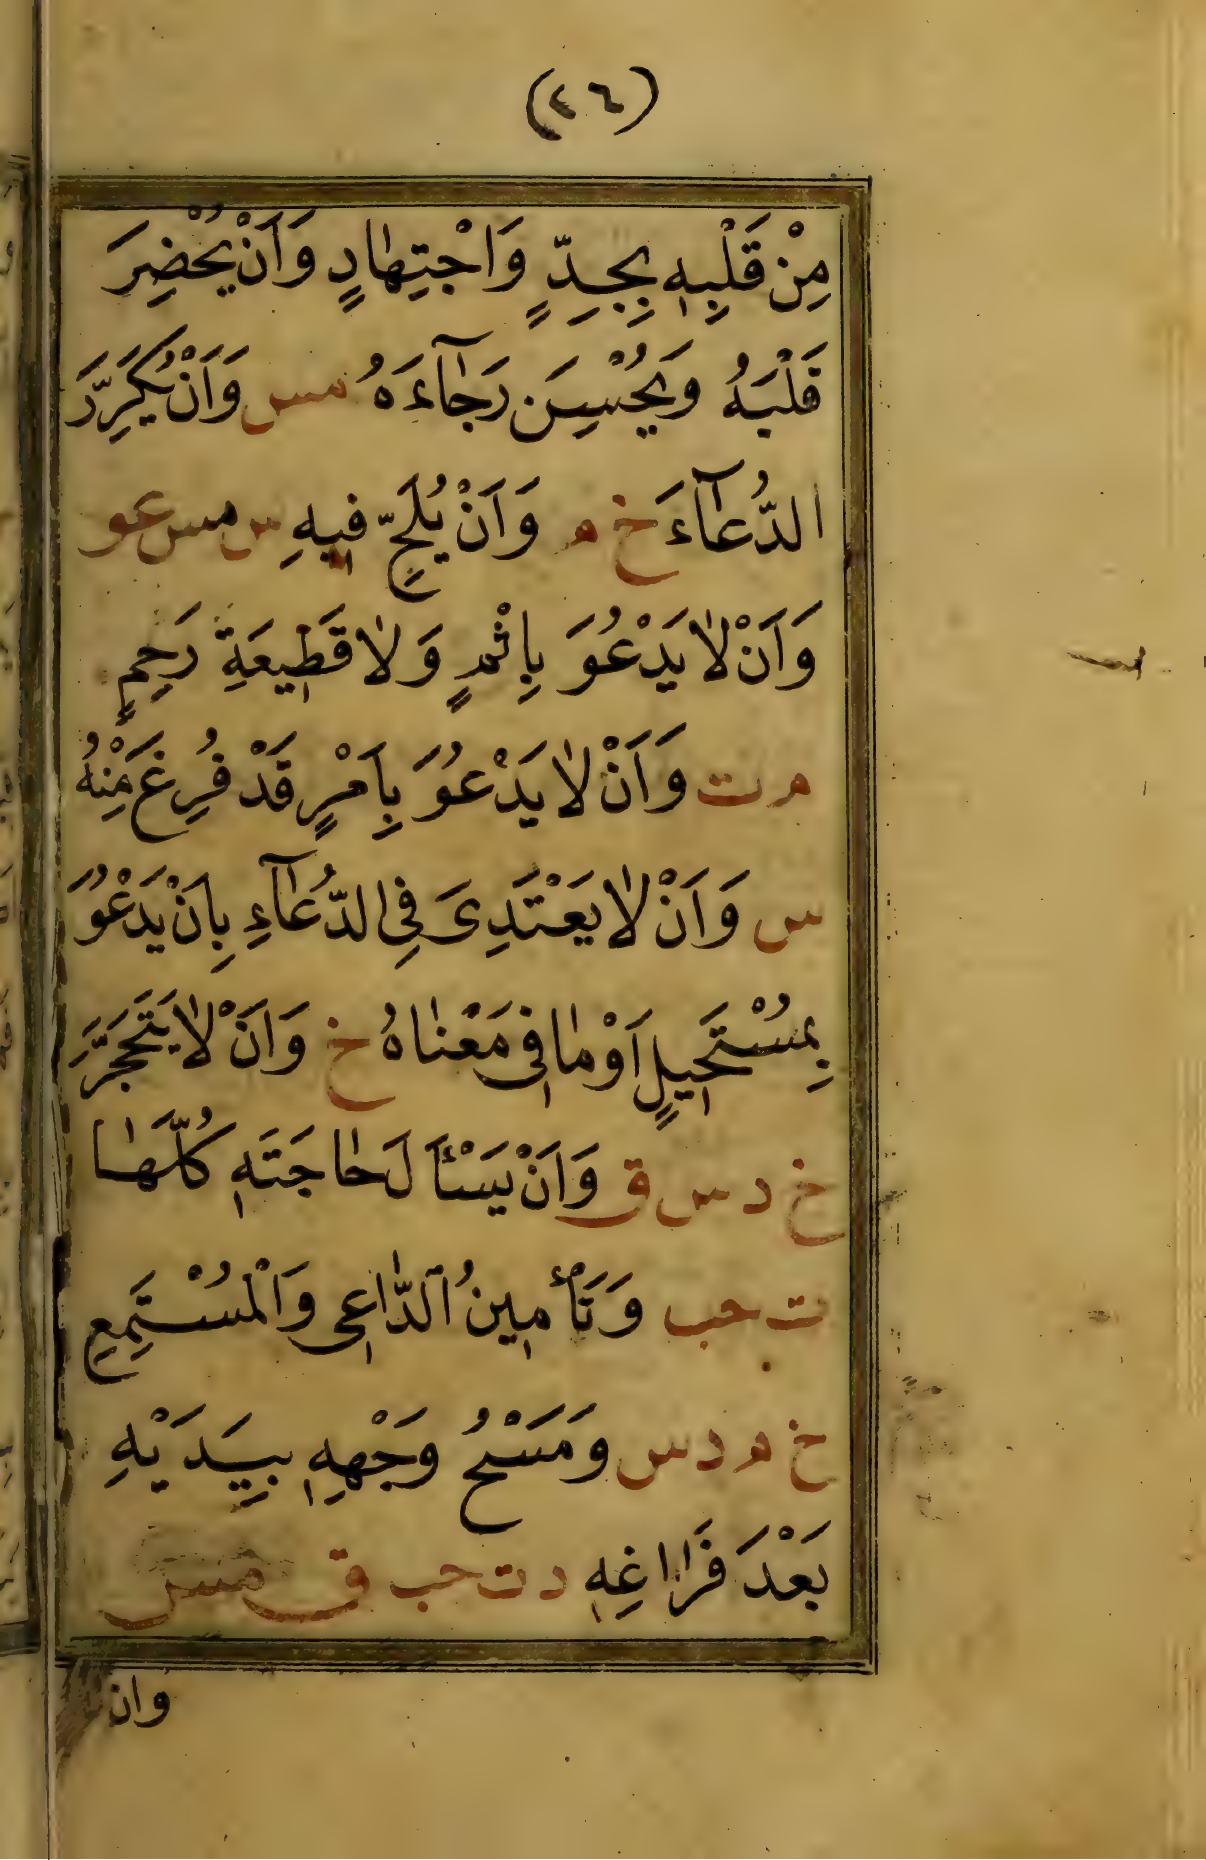 (٢٤)
مِنْ قَلْبِهِ بِجِدٍّ وَاجْتِهَادٍ وَاَنْ يُحْضِرَ
قَلْبَهُ وَيُحْسِنَ رَجَآءَهُ مس وَاَنْ يُكَرِّرَ
الدُّعَآءَ خ م وَاَنْ يُلِحَّ فِيهِ س مس عو
وَاَنْ لَا يَدْعُوَ بِاِثْمٍ وَلَا قَطِيعَةِ رَحِمٍ
م ت وَاَنْ لَا يَدْعُوَ بِاَمْرٍ قَدْ فُرِغَ مِنْهُ
س وَاَنْ لَا يَعْتَدِىَ فِى الدُّعَآءِ بِاَنْ يَدْعُوَ
بِمُسْتَحِيلٍ اَوْ مَا فِى مَعْنَاهُ خ وَاَنْ لَا يَتَحَجَّرَ
خ د س ق وَاَنْ يَسْئَلَ حَاجَتَهِ كُلَّهَا
ت حب وَتَأْمِينُ الدَّاعِى وَالْمُسْتَمِعِ
خ م د س وَمَسْحُ وَجْهِهِ بِيَدَيْهِ
بَعْدَ فَرَاغِهِ د ت حب ق مس
وان